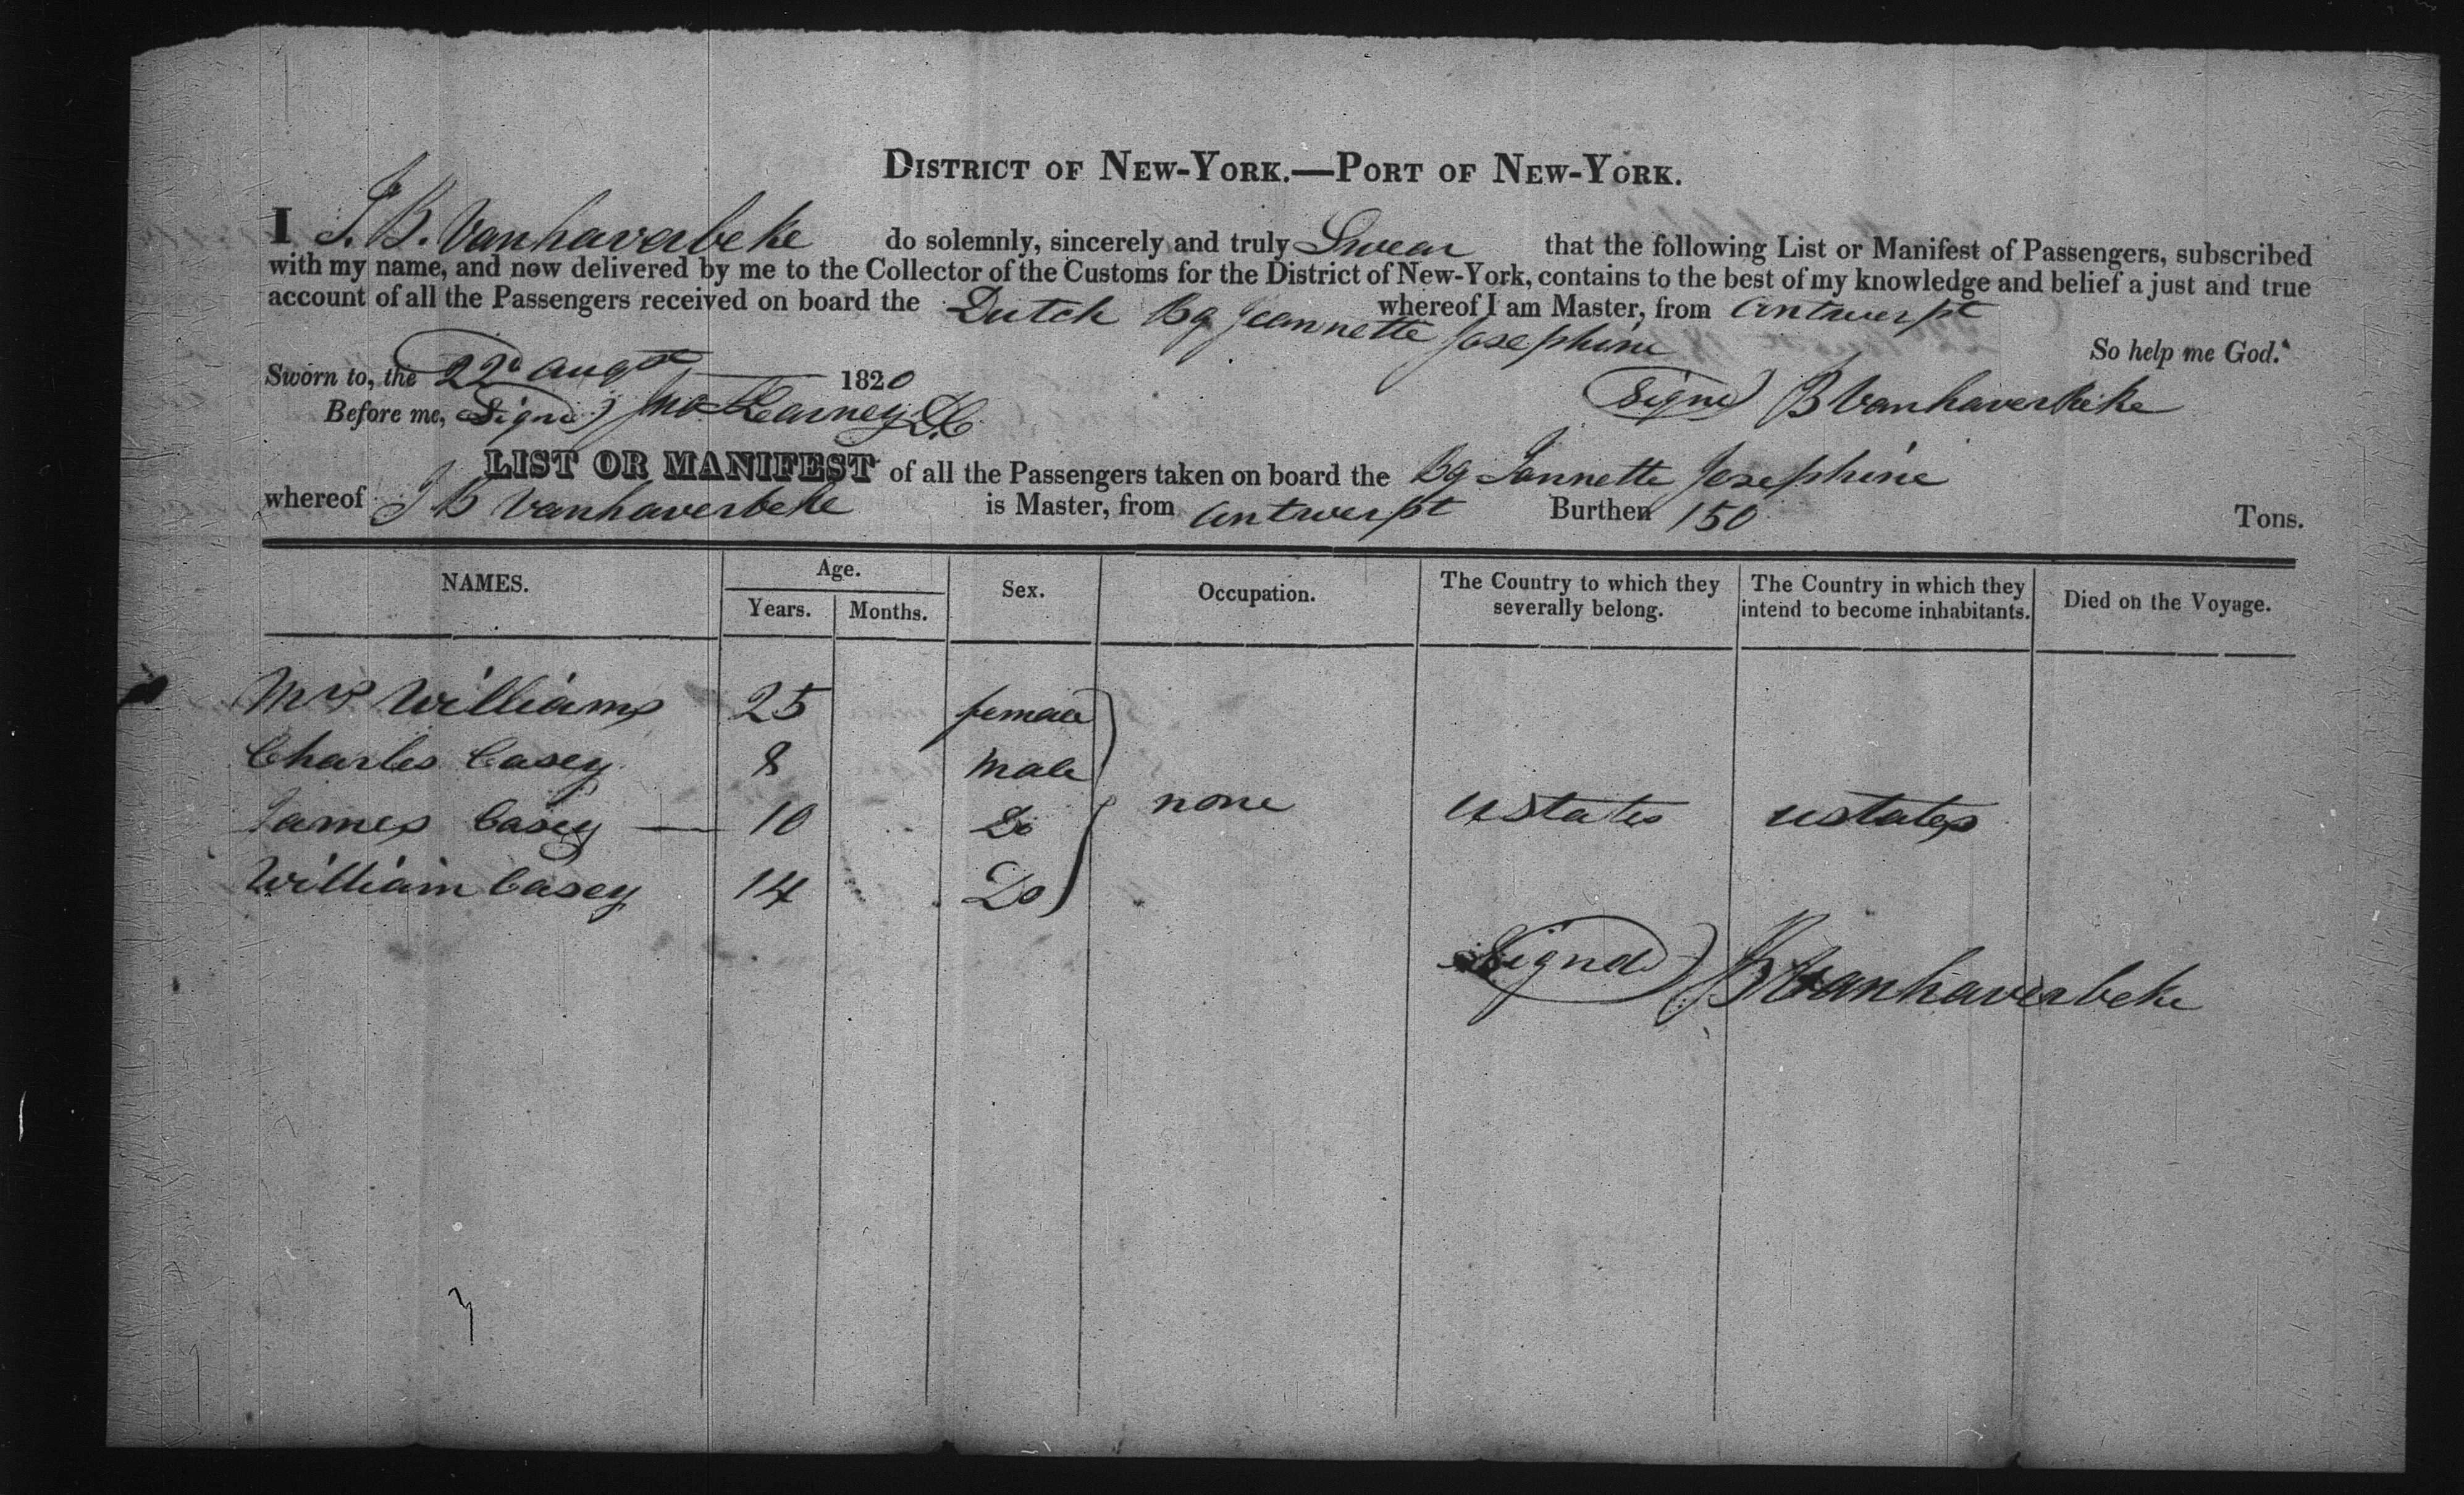 DISTRICT OF NEW-YORK.—PORT OF NEW-YORK.
I J. B. Vanhaverbeke do solemnly, sincerely and truly Swear that the following List or Manifest of Passengers, subscribed
with my name, and now delivered by me to the Collector of the Customs for the District of New-York, contains to the best of my knowledge and belief a just and true
account of all the Passengers received on board the Dutch Bg Jeannette Josephine whereof I am Master, from Antwerpt
So help me God.
Sworn to, the 22d Augst 1820
Before me, Signd) Jno Kearney DC
Signd) JB Vanhaverbeke
LIST OR MANIFEST of all the Passengers taken on board the Bg Jannette Josephine
whereof J B Vanhaverbeke is Master, from Antwerpt Burthen 150 Tons.
NAMES. Age. Years. Months. Sex. Occupation. The Country to which they severally belong. The Country in which they intend to become inhabitants. Died on the Voyage.
Mrs Williams 25 female
Charles Casey 8 Male
James Casey — 10 Do none UStates UStates
William Casey 14 Do
Signd) JB Vanhaverbeke